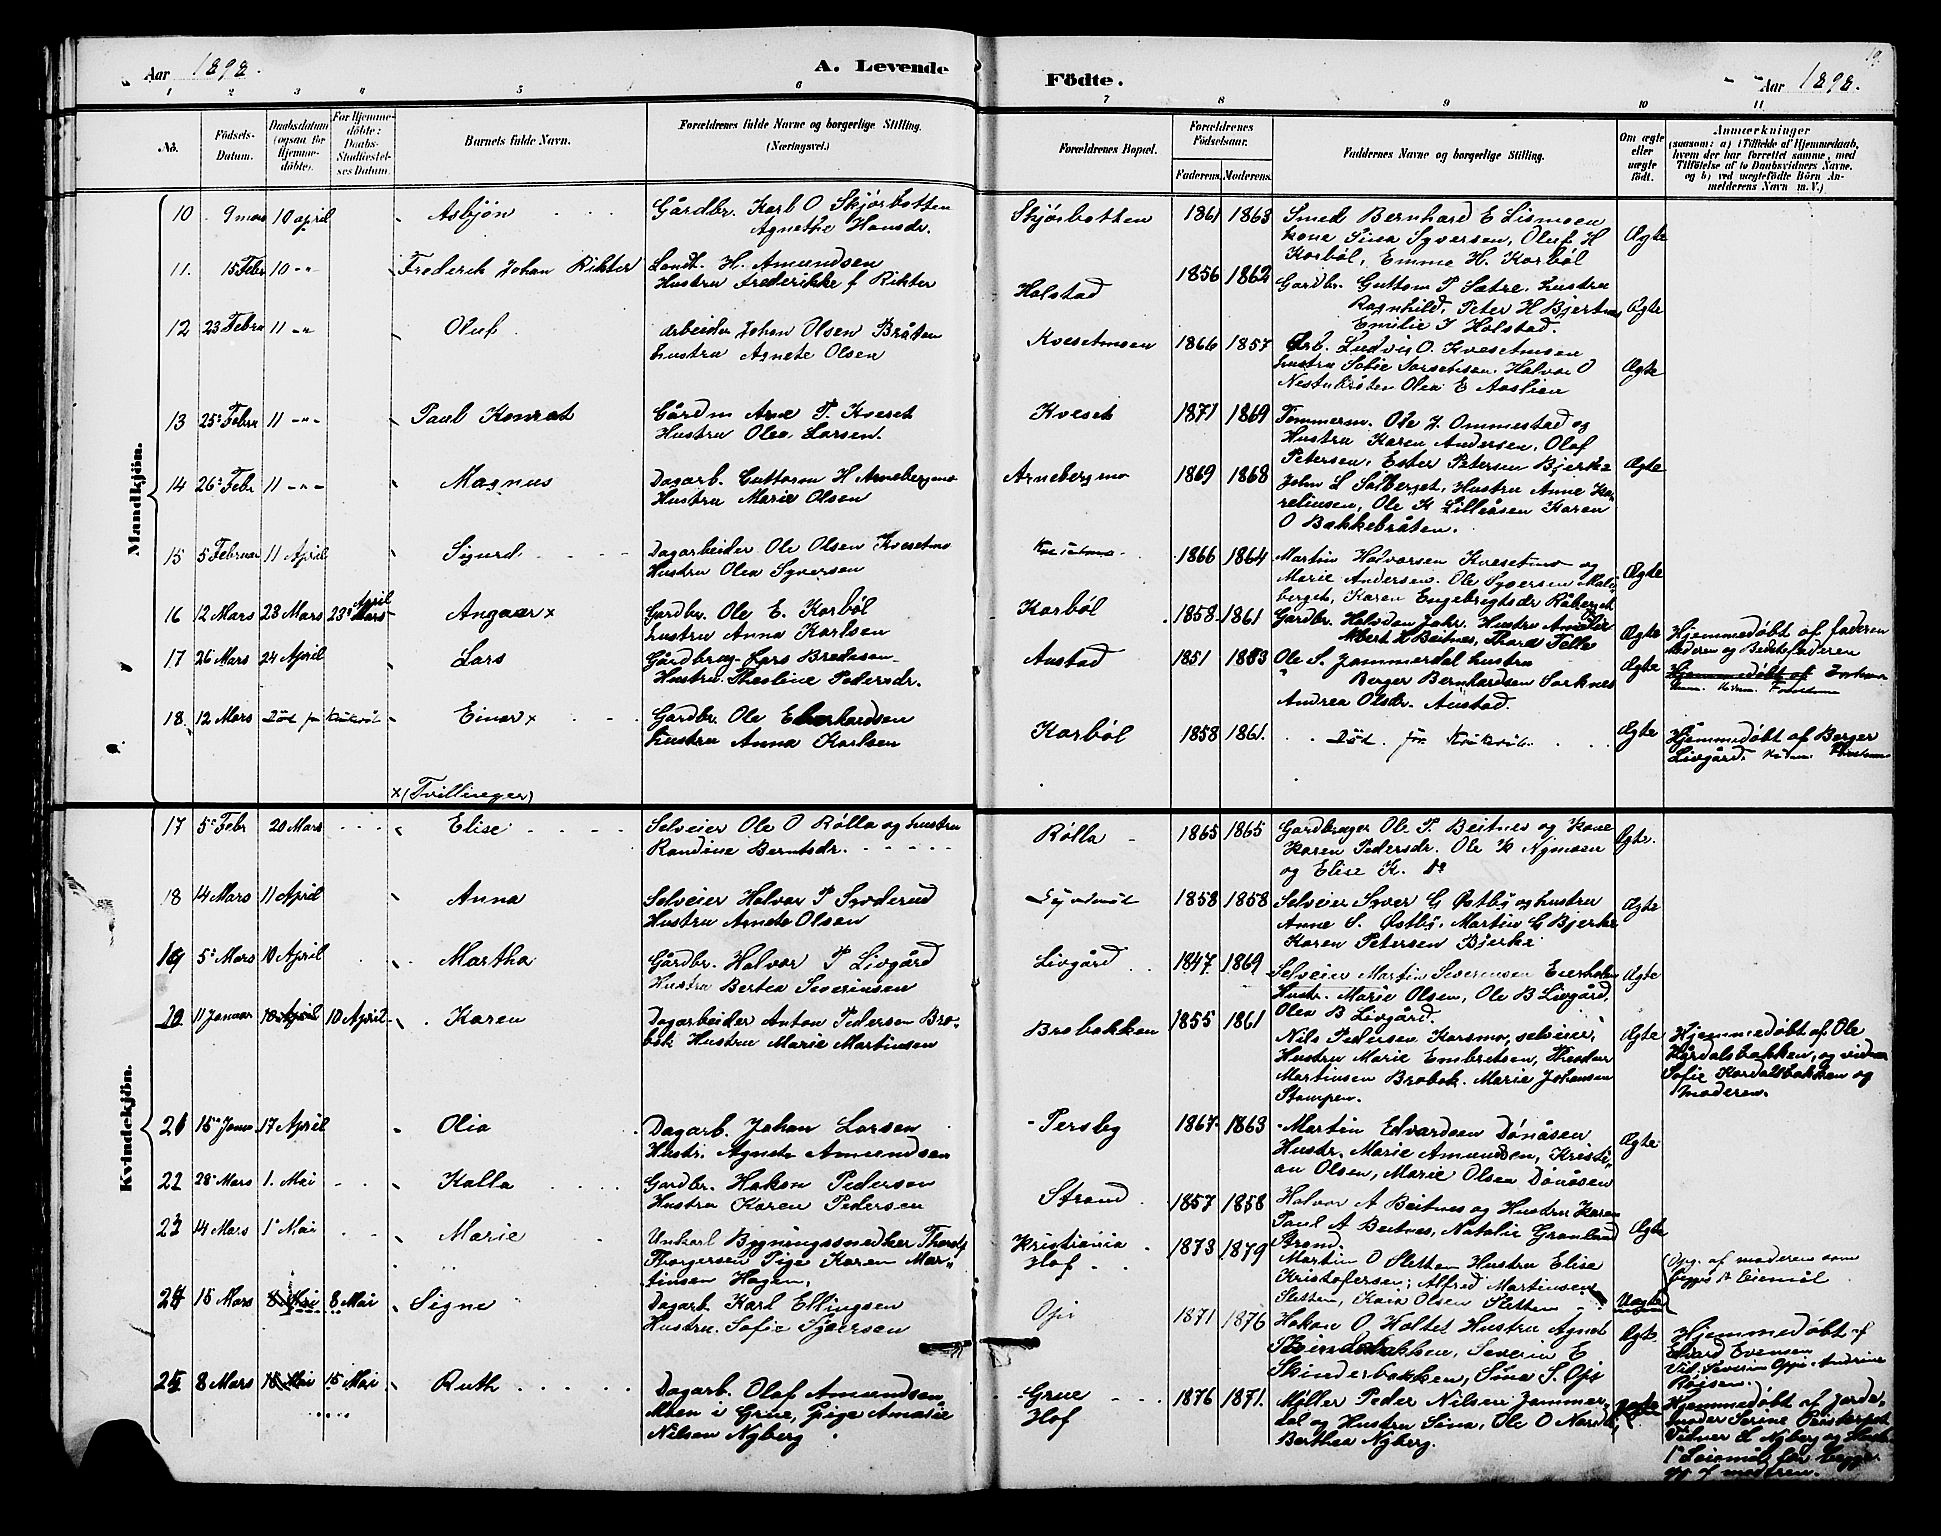 Aar 1898. A. Levende Födte. Aar 1898. 19.
1 2 3 4 5 6 7 8 9 10 11
No. Födsels-Datum. Daabsdatum (ogsaa for Hjemmedöbte). For Hjemmedöbte: Daabs-Stadfæstelses Datum. Barnets fulde Navn. Forældrenes fulde Navne og borgerlige Stilling. (Næringsvei.) Forældrenes Bopæl. Forældrenes Födselsaar. Faderens. Moderens. Faddernes Navne og borgerlige Stilling. Om ægte eller uægte födt. Anmærkninger (saasom: a) i Tilfælde af Hjemmedaab, hvem der har forrettet samme, med Tilföielse af to Daabsvidners Navne, og b) ved uægtefödte Börn Anmelderens Navn m. V.)
Mandkjön.
10 9 mars 10 april Asbjön Gårdbr. Karl O Skjørbotten Skjørbotten 1861 1863 Smed Bernhard E Lismoen
Agnethe Hansdr. kone Sina Syversen, Oluf H Ægte
Korbøl, Emma H. Korbøl
11. 15 Febr 10 -"- Frederik Johan Rikter Landh. H. Amundsen Holstad 1856 1862 Gardbr. Guttorm P Sætre, Hustru
Hustru Frederikke f Rikter Ragnhild, Peter H Bjertnes Ægte
Emilie J Holstad.
12 23 Febru 11 -"- Oluf Arbeider Johan Olsen Bråten Kvesetmoen 1866 1857 Arb. Ludvig O. Kvesetmoen
hustru Agnete Olsen hustru Sofie Halvor O Ægte
Olea E Aaslien
13 25 Febru 11 -"- Paul Konrat Gårdm Arne P. Kveset Kveset 1871 1869 Tømmerm. Ole J. Ommestad og
Hustru Olea Larsen. Hustru Karen Andersen, Olof
Petersen, Ester Petersen Bjerke Ægte
14 26 Febr 11 -"- Magnus Dagarb. Guttorm H Arnebergmo Arnebergmo 1869 1868 John L Solberget, Hustru Anne Ka-
Hustru Marie Olsen relinsen, Ole K Lilleåsen Karen
O Bakkebråten.
15 5 Februar 11 April Sigurd Dagarbeider Ole Olsen Kvesetmo Kvesetmo 1866 1864 Martin Halvorsen Kvesetmo og
Hustru Olea Syversen Marie Andersen. Ole Syversen Ægte
berget, Karen Engebrigtsdr Råberget
16 12 Mars 23 Mars 23 April Mars Angaar x Gardbr. Ole E. Korbøl Korbøl 1858 1861 Gardbr. Halsden Hustru Ægte Hjemmedøbt af faderen
hustru Anna Karlsen Albert H Beitnes, Thora Telle
17 26 Mars 24 April Lars Gårdbrug. Lars Bredesen Austad 1851 1883 Ole S. Jammerdal hustru Ægte Hjemmedøbt af
Hustru Thestine Pedersdr. Berger Bernhardsen Sorknes
Andrea Olsdr. Austad.
18 12 Mars Död før Kirkevei Einar x Gardbr. Ole Eberhardsen Korbøl 1858 1861. Död før Kirkevei Ægte Hjemmedøbt af Berger
hustru Anna Karlsen Livgård.
x (Tvillinger)
Kvindekjön.
17 5 Febr 20 Mars Elise Selveier Ole O Rølla og hustru Rølla 1865 1865 Gardbruger Ole P. Beitnes og Kone Ægte.
Randine Berntsdr. Karen Pedersdr. Ole K Nymoen
og Elise K. do
18 14 Mars 11 April Anna Selveier Halvor P Syvderud 1858 1858 Selveier Syver G Østby og hustru Ægte
Hustru Agnete Olsen Anne S. Østby, Martin G Bjerke
Karen Petersen Bjerke
19 5 Mars 10 April Martha Gårdbr. Halvor P Livgård Livgård 1847 1869 Selveier Martin Severinsen Ægte
Hustru Bertea Severinsen Hustr. Marie Olsen, Ole B Livgård.
Olea B Livgård.
20 11 Januar 10 April 10 April Karen Dagarbeider Anton Pedersen Bro- Brobakken 1855 1861 Nils Pedersen Karsmo, selveier, Ægte Hjemmedøbt af Ole
bak Hustru Marie Martinsen Hustru Marie Embretsen, Theodor Kårdalsbakken, og vidner
Martinsen Brobak. Marie Johansen Sofie Kårdalsbakken og
Stampen. moderen.
21 15 Janu 17 April Olia Dagarb. Johan Larsen Persby 1867 1863 Martin Edvardsen Dønåsen Ægte
Hustr. Agnete Amundsen Hustr. Marie Amundsen, Kristi-
an Olsen, Marie Olsen Dønåsen
22 28 Mars 1. Mai Kalla Gardbr. Hakon Pedersen Strand 1857 1858 Halvor A Beitnes og Hustru Karen
Hustru Karen Pedersen Paul A Beitnes, Natalie Grønlund Ægte
Strand
23 14 Mars 1 Mai Marie Unkarl Bygningssnedker Thorolf Kristiania 1873 1879 Martin O Sletten Hustru Elise Opg. af moderen som
Thorgersen Pige Karen Mar- Hof Kristofersen; Alfred Martinsen begges 1ste leiermål.
tinsen Hagen, Sletten, Kaia Olsen Sletten Uægte
24 15 Mars 8 Mai 8 Mai Signe Dagarb. Karl Ellingsen Opi 1871 1876 Hakon O. Holtet Hustru Agnet Ægte Hjemmedøbt af
Hustru. Sofie Syversen Skinderbakken, Severin E Edvard Evensen
Skinderbakken, Sina S. Opi Vid. Severin Oppi Andrine
25 8 Mars 15 Mai 15 Mai Ruth Dagarb. Olaf Amundsen Grue 1876 1871. Møller Peder Nilsen Jammer- Hjemmedøbt af Jorde-
Moen i Grue, Pige Amalie Hof dal og Hustru Sina, Ole O moder Serine
Nilsen Nyberg Berthea Nyberg. Vidner L Nyberg og Hustr.
1ste Leiermål for begge
opg af moderen.